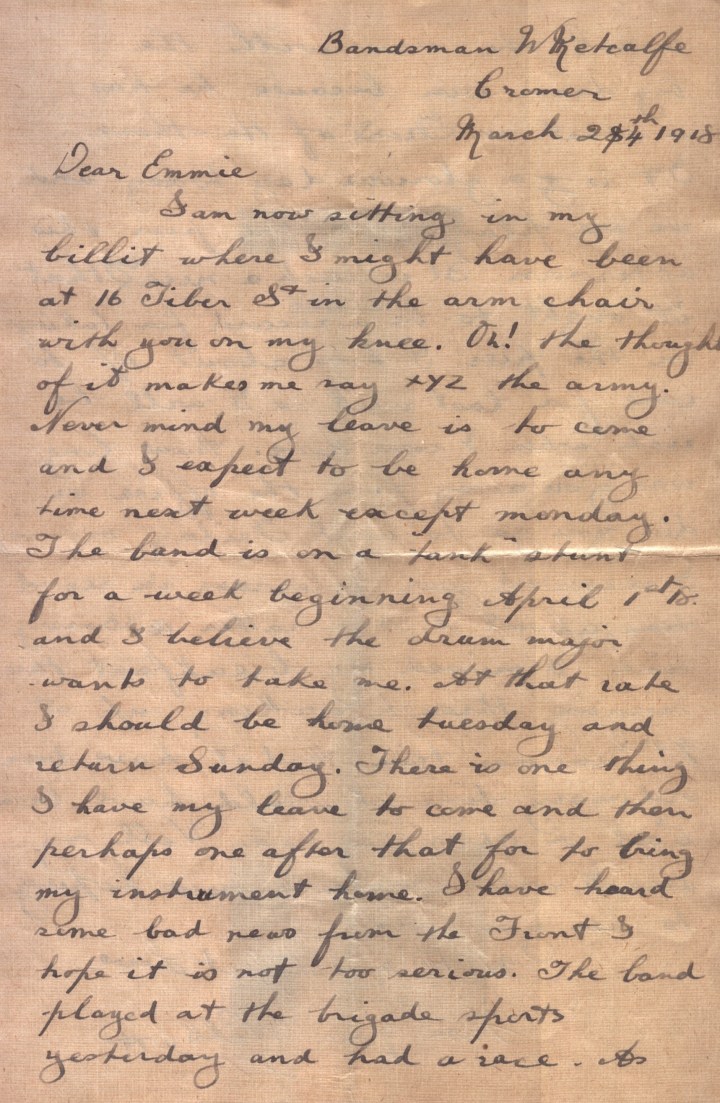 Bandsman W Metcalfe
Cromer
March 24th 1918
Dear Emmie
I am now sitting in my
billit where I might have been
at 16 Tiber St in the arm chair
with you on my knee. Oh! the thought
of it makes me say XYZ the army.
Never mind my leave is to come
and I expect to be home any
time next week except monday.
The band is on a "tank" stunt
for a week beginning April 1st
and I believe the drum major
wants to take me. At that rate
I should be home tuesday and
return Sunday. There is one thing
I have my leave to come and then
perhaps one after that for to bring
my instrument home. I have heard
some bad news from the Front I
hope it is not too serious. The band
played at the brigade sports
yesterday and had a race. As